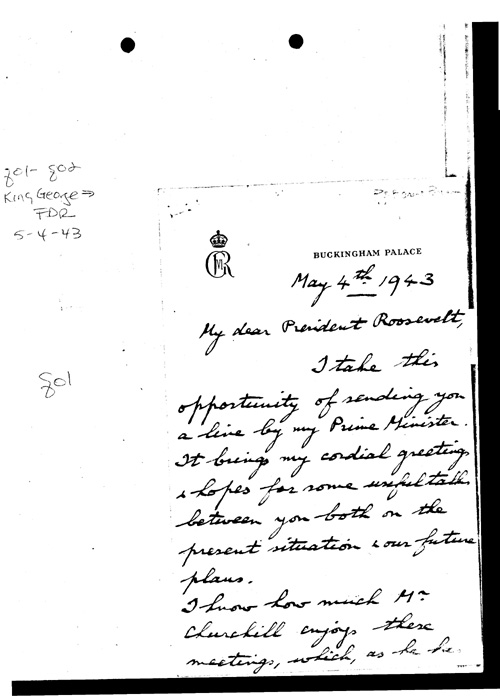 801- 802
King George ⇒
FDR
5-4-43
801
GMR
BUCKINGHAM PALACE
May 4th 1943
My dear President Roosevelt,
I take this
opportunity of sending you
a line by my Prime Minister.
It brings my cordial greetings
& hopes for some useful talks
between you both on the
present situation & our future
plans.
I know how much Mr
Churchill enjoys these
meetings, which, as he has